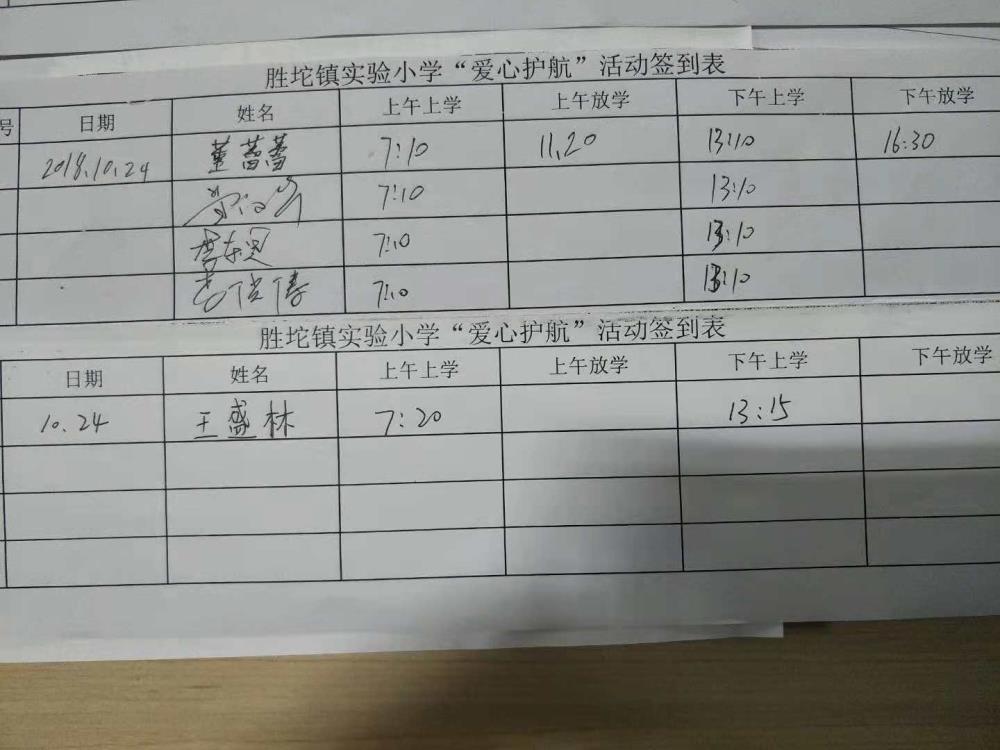 胜坨镇实验小学“爱心护航”活动签到表
号 日期 姓名 上午上学 上午放学 下午上学 下午放学
2018.10.24 董蕾蕾 7:10 11,20 13:10 16:30
7:10 13:10
7:10 13:10
7:10 13:10
胜坨镇实验小学“爱心护航”活动签到表
日期 姓名 上午上学 上午放学 下午上学 下午放学
10.24 王盛林 7:20 13:15